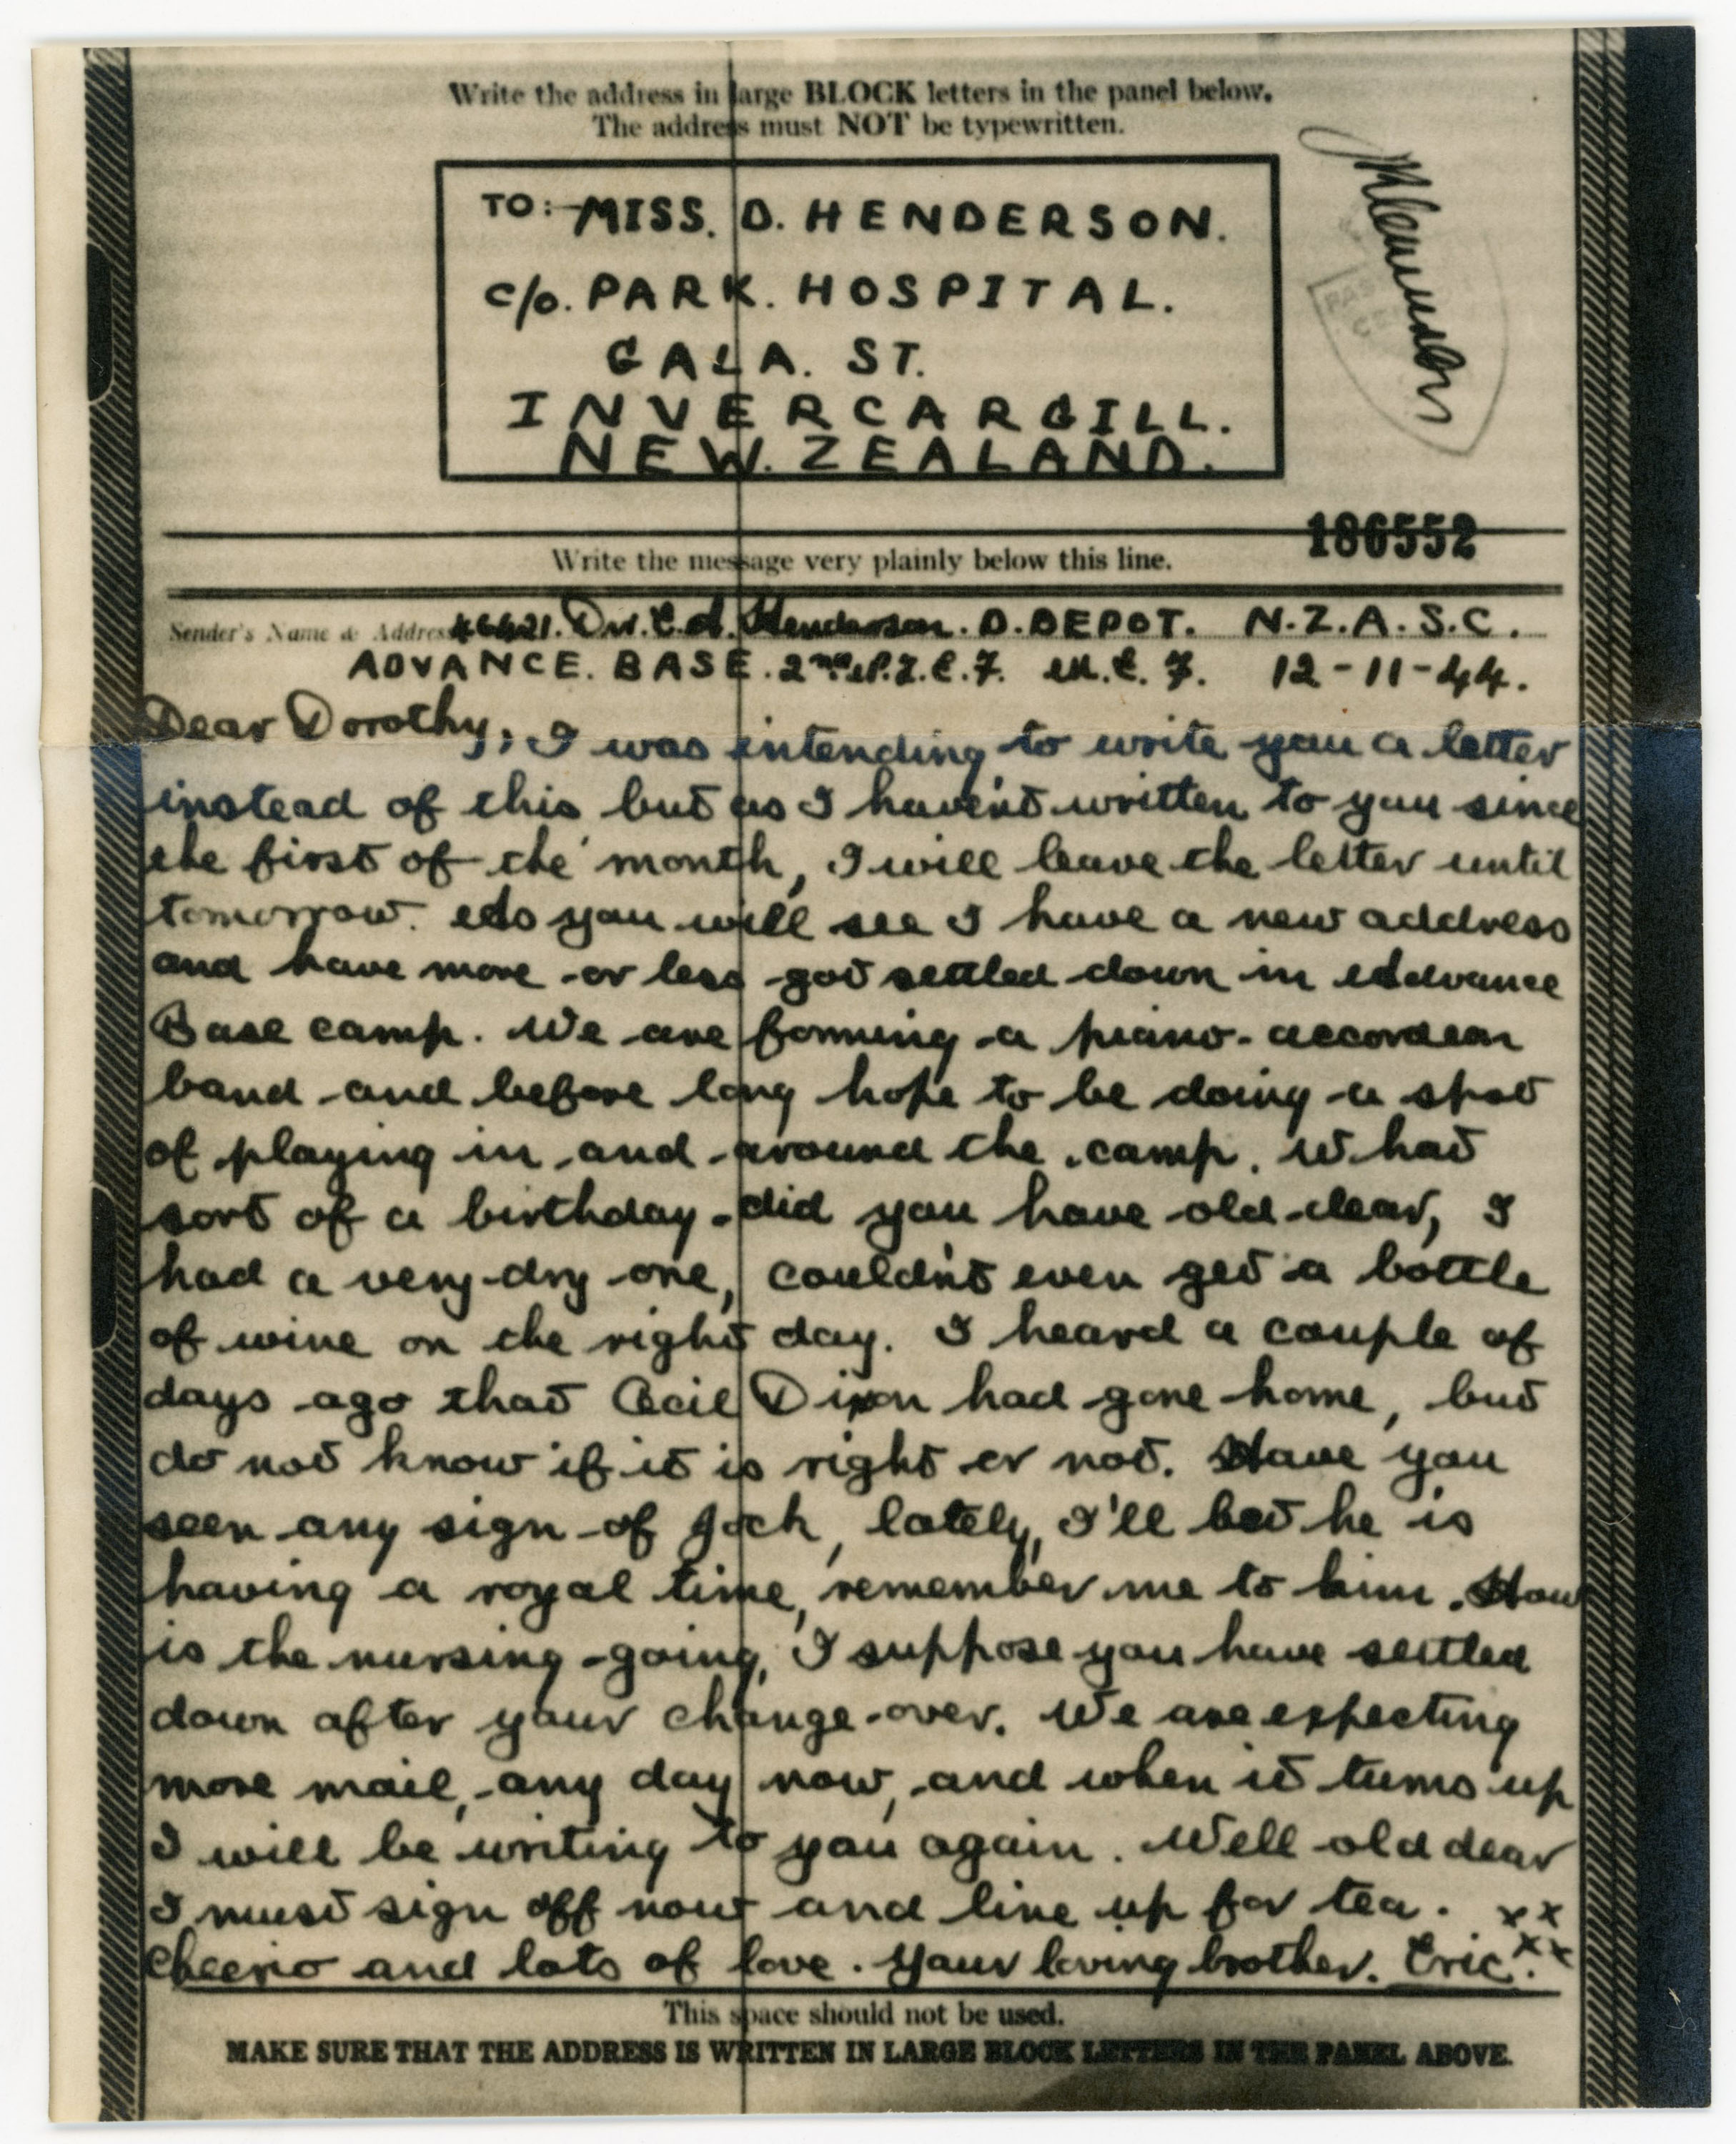 Write the address in large BLOCK letters in the panel below.
The address must NOT be typewritten.
TO:- MISS. D. HENDERSON.
c/o. PARK. HOSPITAL.
GALA. ST.
INVERCARGILL.
NEW. ZEALAND.
186552
Write the message very plainly below this line.
Sender's Name & Address Dvr. E.A. Henderson. D. DEPOT. N.Z.A.S.C.
ADVANCE. BASE. 2nd N.Z.E.F. M.E.F. 12-11-44.
Dear Dorothy,
I was intending to write you a letter
instead of this but as I haven't written to you since
the first of the month, I will leave the letter until
tomorrow. As you will see I have a new address
and have more or less got settled down in Advance
Base camp. We are forming a piano-accordean
band and before long hope to be doing a spot
of playing in and around the camp. What
sort of a birthday did you have old dear, I
had a very dry one, couldn't even get a bottle
of wine on the right day. I heard a couple of
days ago that Cecil Dixon had gone home, but
do not know if it is right or not. Have you
seen any sign of Jock, lately, I'll bet he is
having a royal time, remember me to him. How
is the nursing going, I suppose you have settled
down after your change-over. We are expecting
more mail, any day now, and when it turns up
I will be writing to you again. Well old dear
I must sign off now and line up for tea. xx
Cheerio and lots of love. Your loving brother. Eric. xx
This space should not be used.
MAKE SURE THAT THE ADDRESS IS WRITTEN IN LARGE BLOCK LETTERS IN THE PANEL ABOVE.